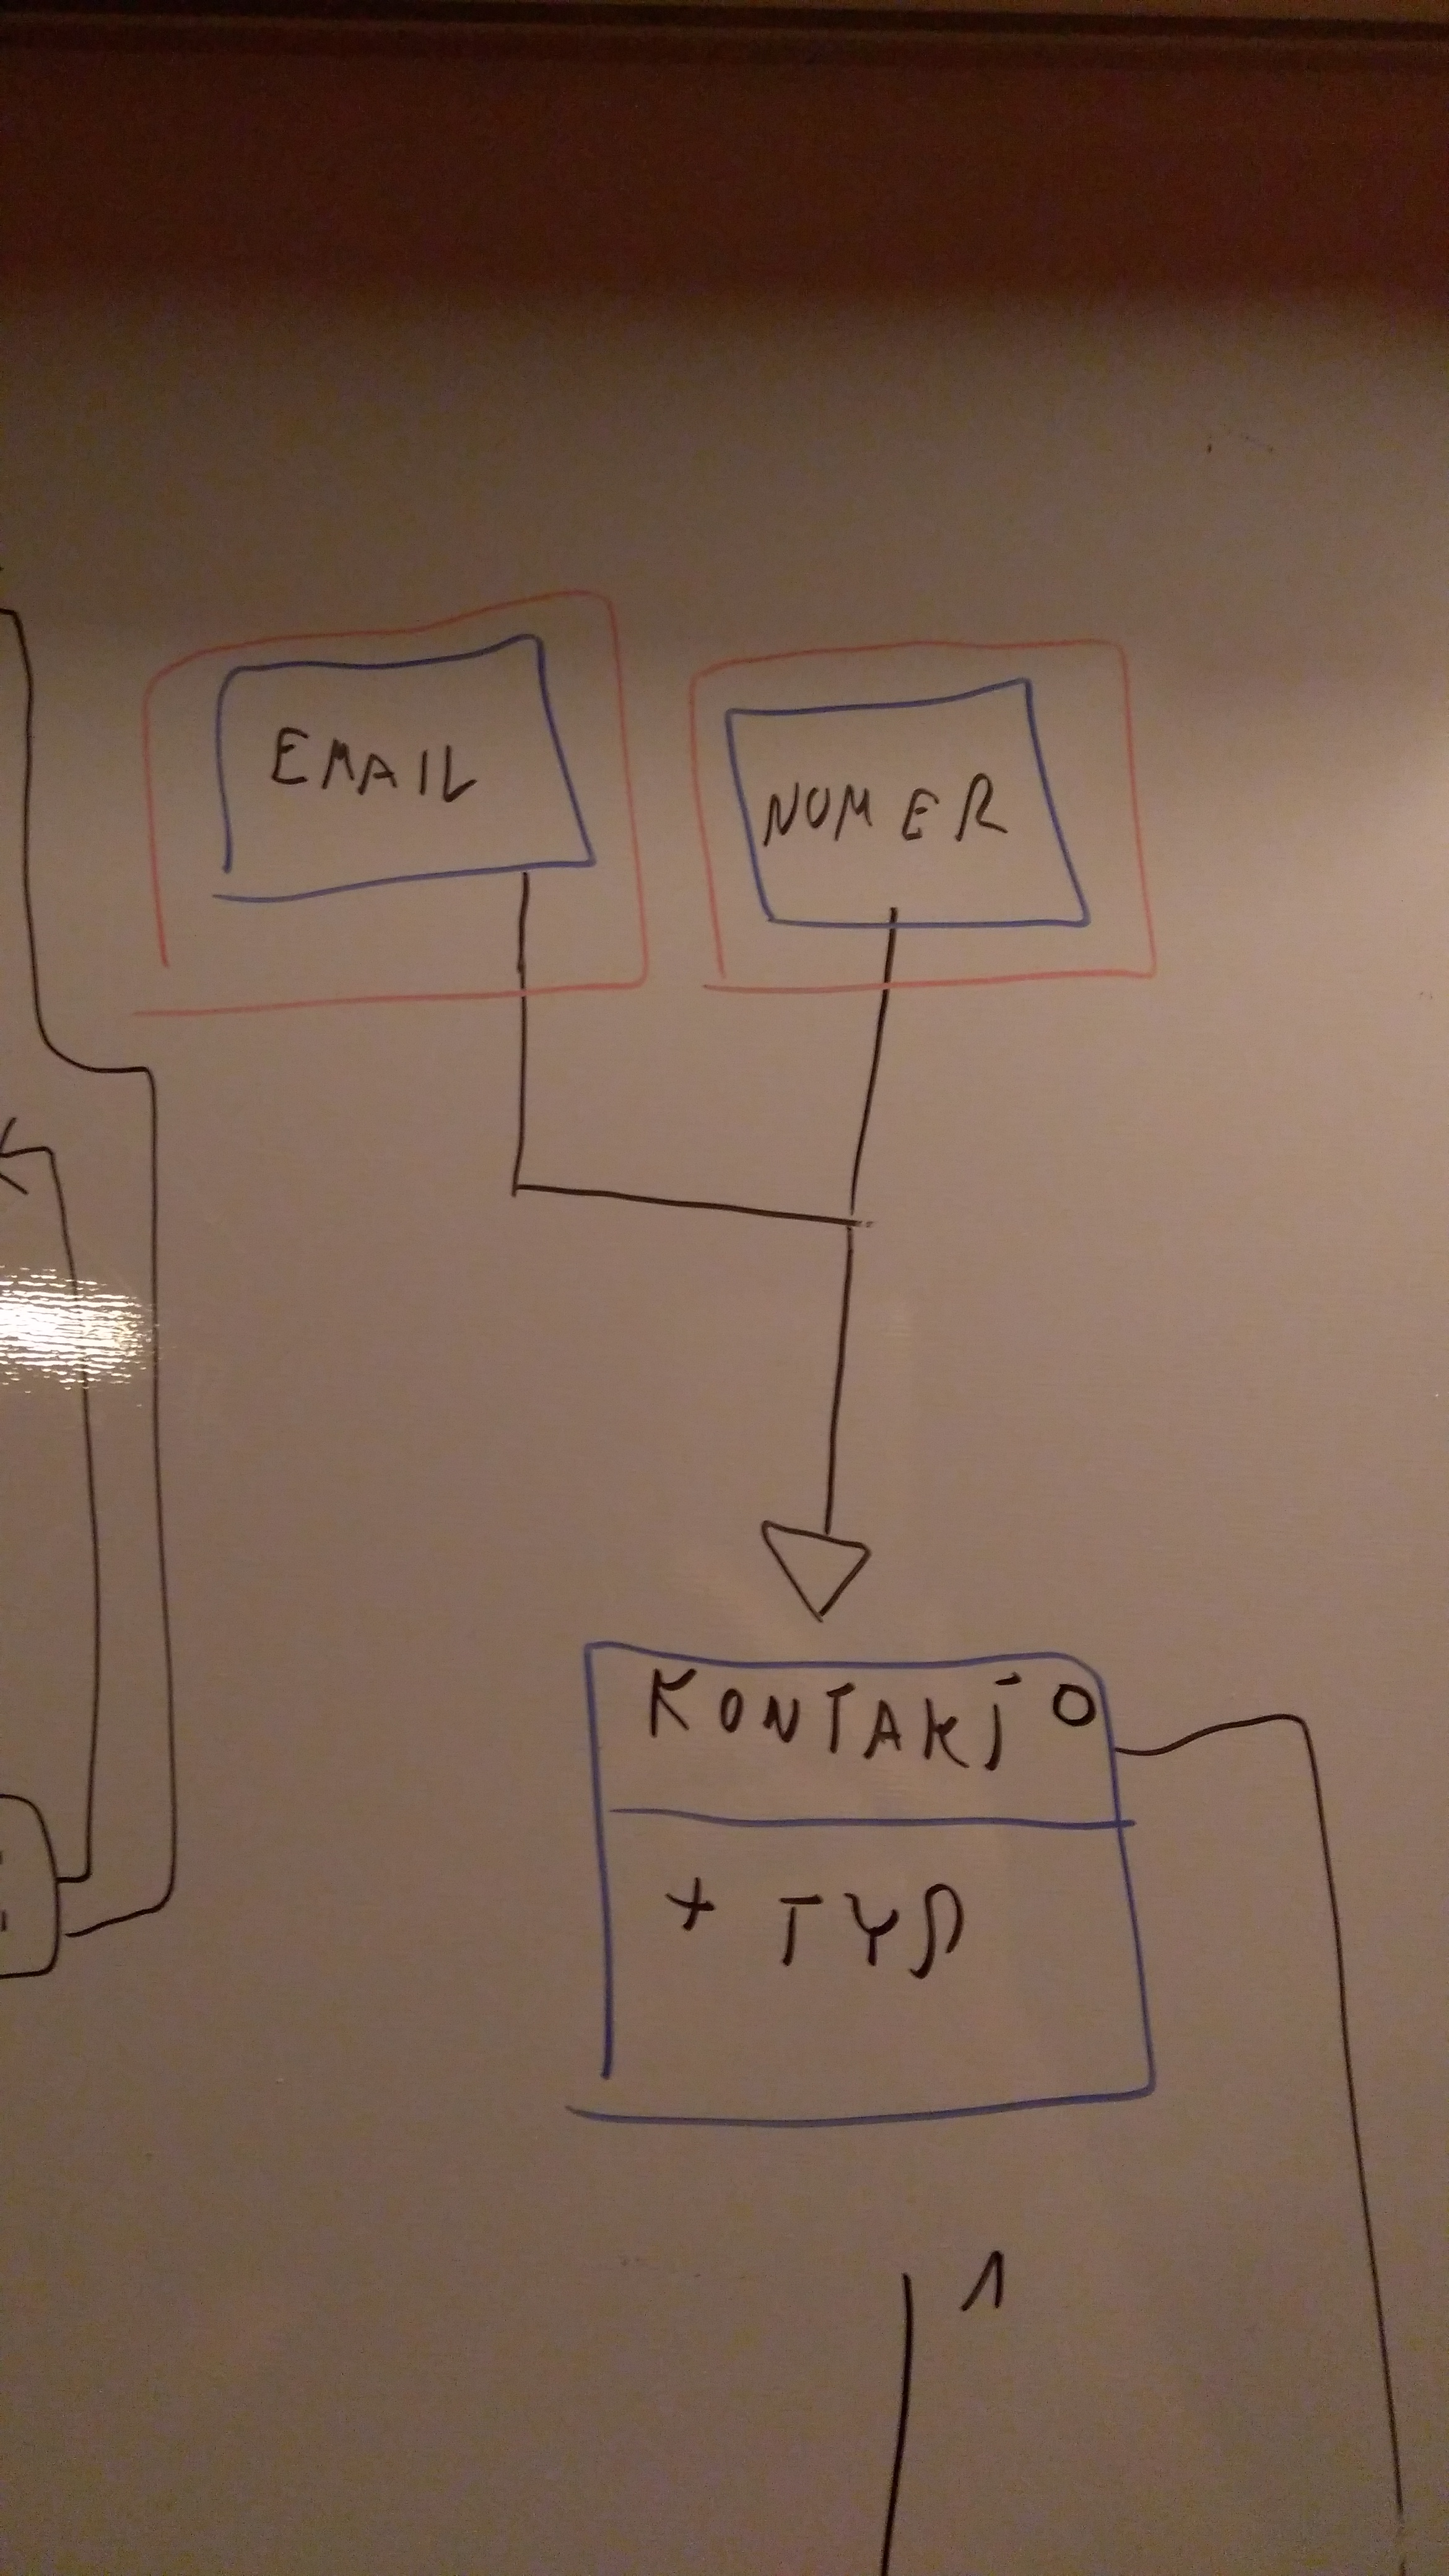 EMAIL
NUMER
KONTAKT O
+ TYP
1